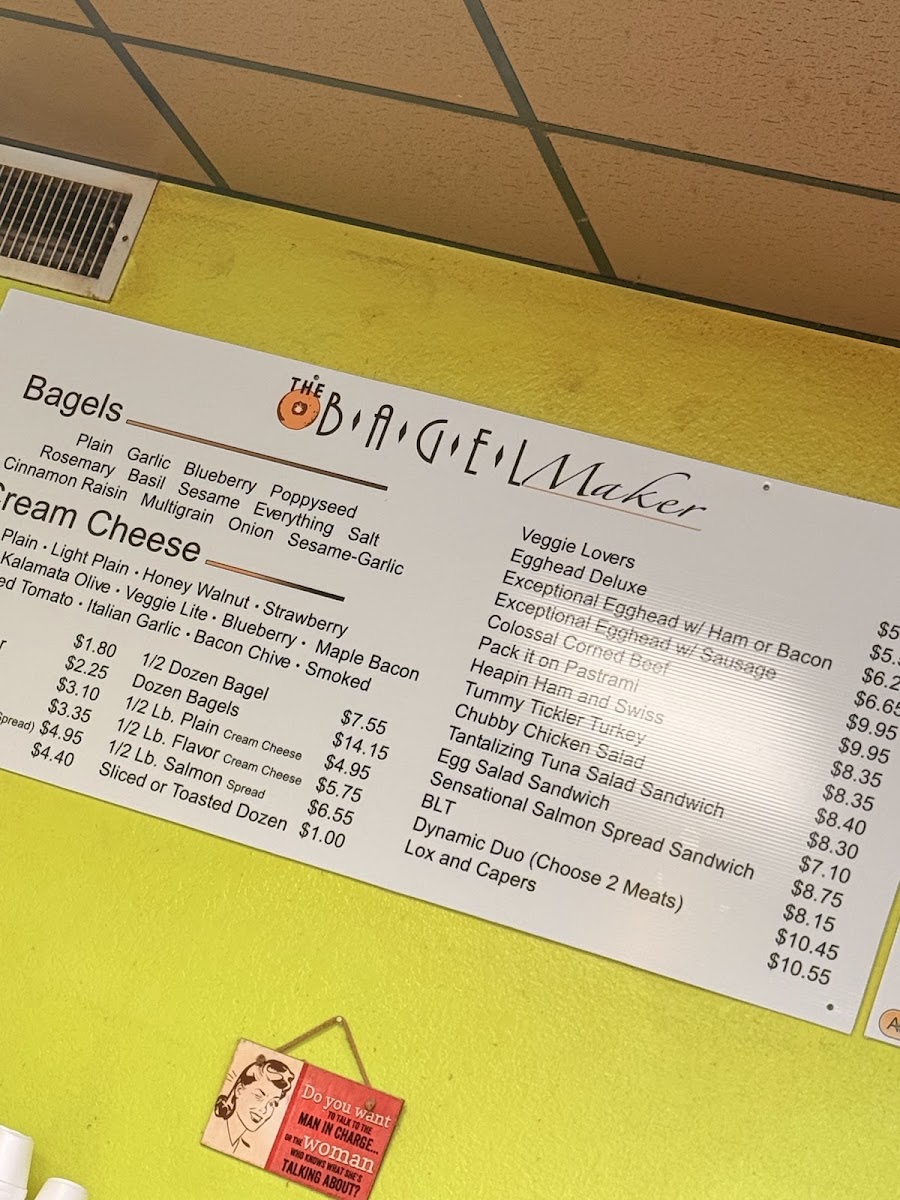 THE BAGEL Maker
Bagels
Plain Garlic Blueberry Poppyseed
Rosemary Basil Sesame Everything Salt
Cinnamon Raisin Multigrain Onion Sesame-Garlic
Cream Cheese
Plain • Light Plain • Honey Walnut • Strawberry
Kalamata Olive • Veggie Lite • Blueberry • Maple Bacon
Tomato • Italian Garlic • Bacon Chive • Smoked
$1.80
$2.25
$3.10
$3.35
Spread) $4.95
$4.40
1/2 Dozen Bagel $7.55
Dozen Bagels $14.15
1/2 Lb. Plain Cream Cheese $4.95
1/2 Lb. Flavor Cream Cheese $5.75
1/2 Lb. Salmon Spread $6.55
Sliced or Toasted Dozen $1.00
Veggie Lovers
Egghead Deluxe
Exceptional Egghead w/ Ham or Bacon
Exceptional Egghead w/ Sausage $6.65
Colossal Corned Beef $9.95
Pack it on Pastrami $9.95
Heapin Ham and Swiss $8.35
Tummy Tickler Turkey $8.35
Chubby Chicken Salad $8.40
Tantalizing Tuna Salad Sandwich $8.30
Egg Salad Sandwich $7.10
Sensational Salmon Spread Sandwich $8.75
BLT $8.15
Dynamic Duo (Choose 2 Meats) $10.45
Lox and Capers $10.55
Do you want
TO TALK TO THE
MAN IN CHARGE...
OR THE woman
WHO KNOWS WHAT SHE'S
TALKING ABOUT?